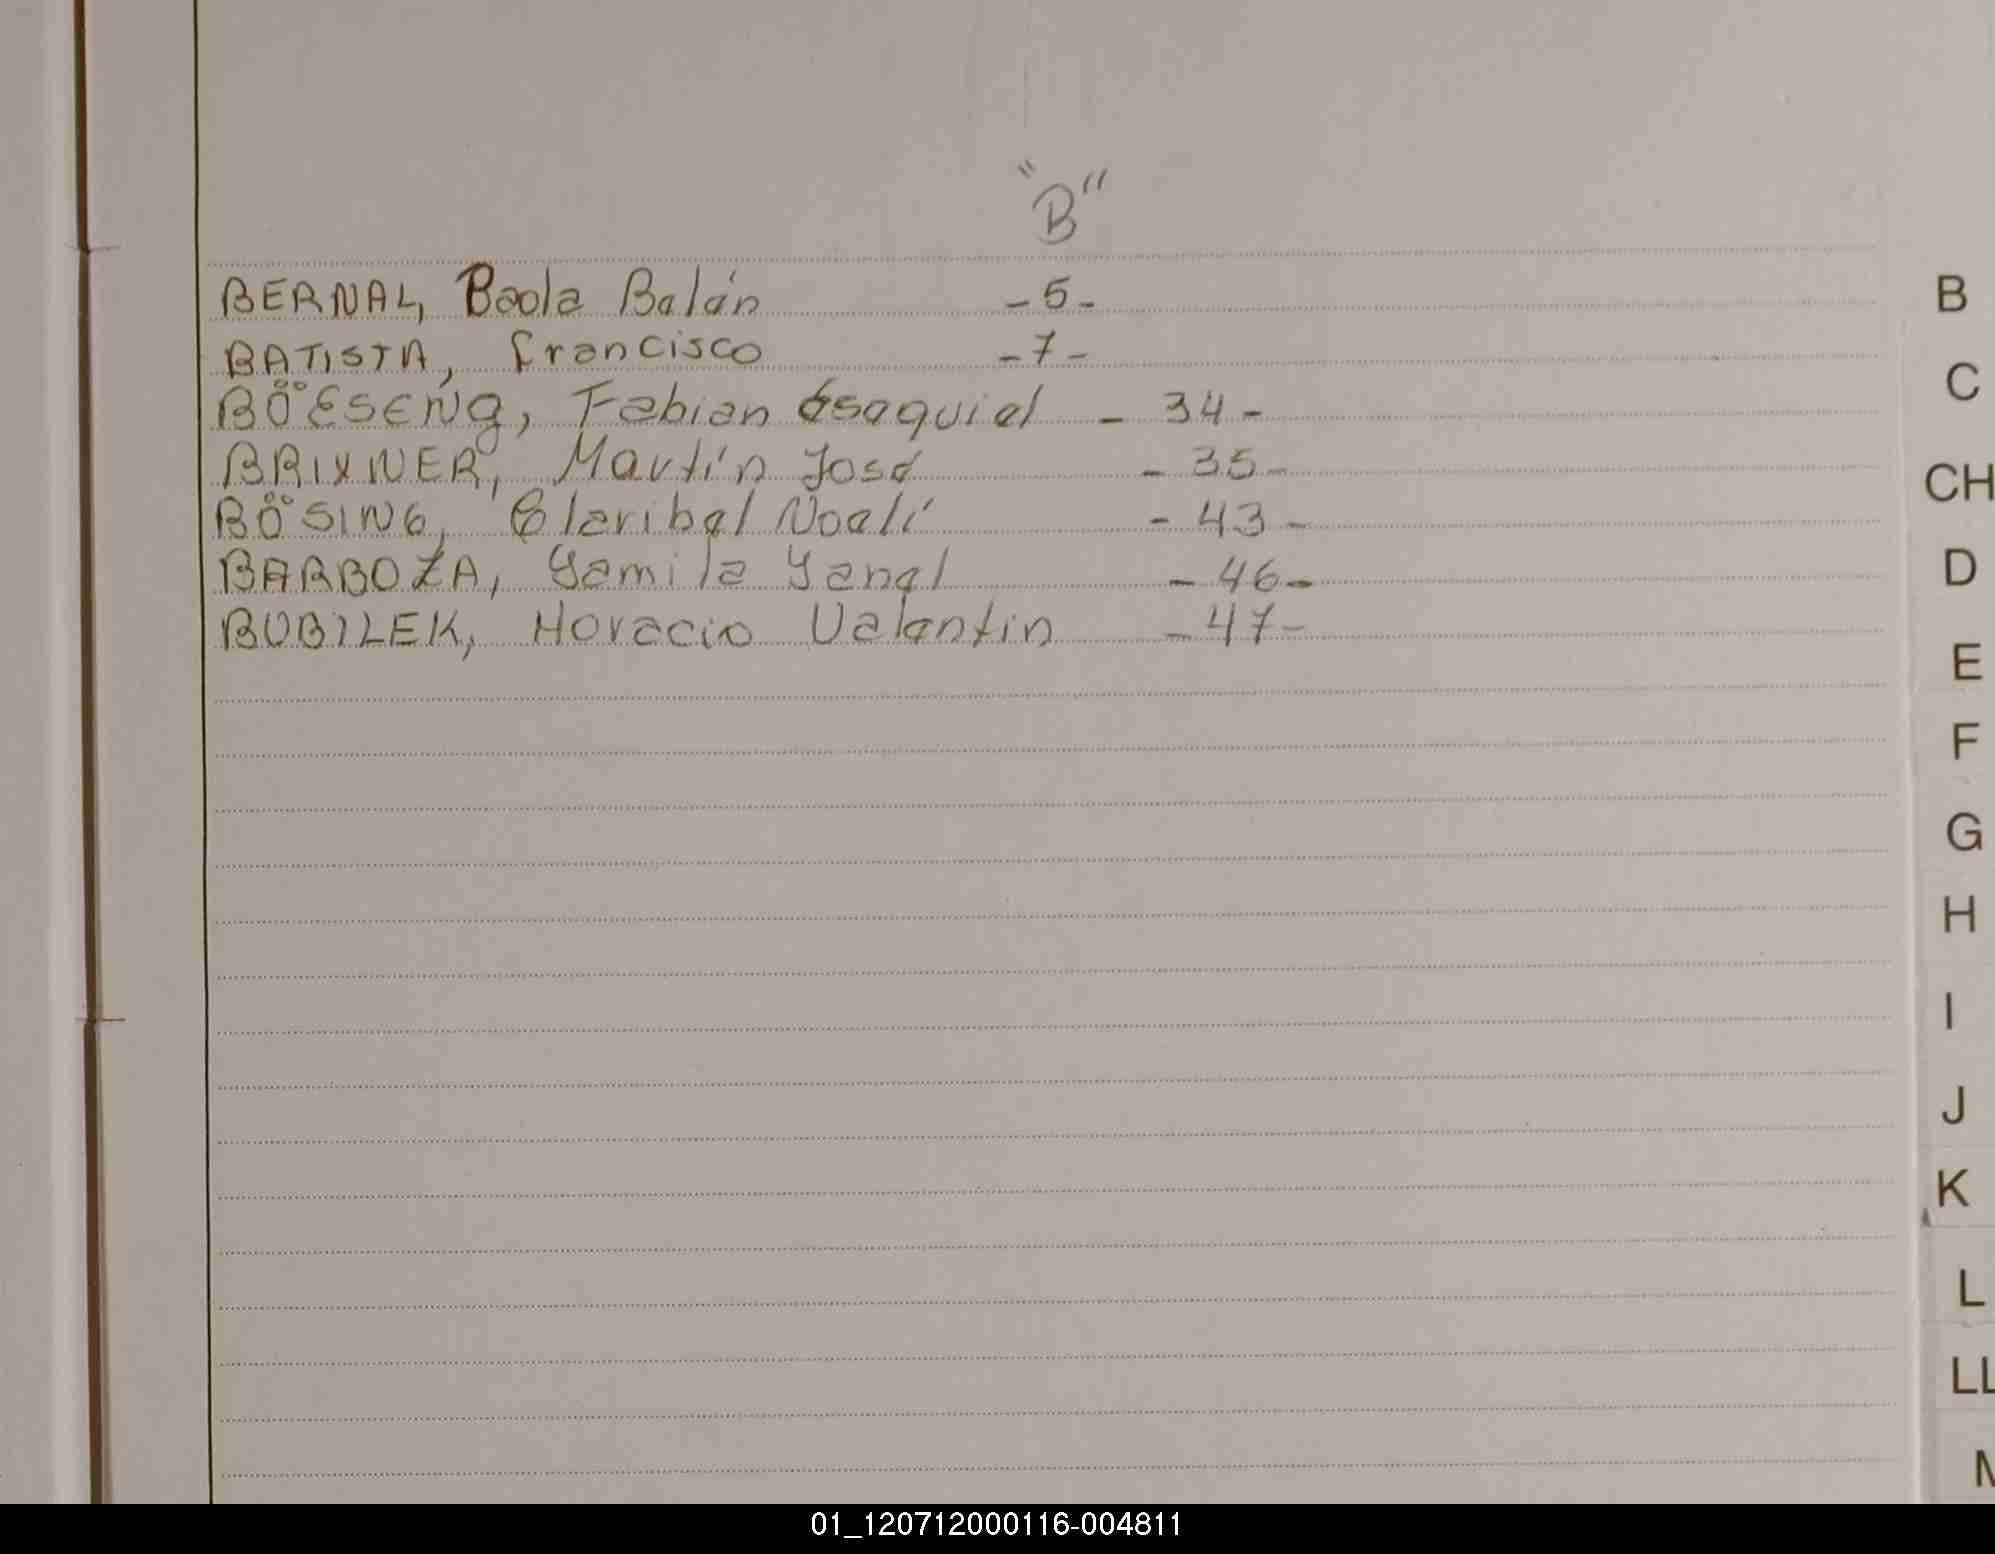 "B"
BERNAL, Paola Belén - 5 -
BATISTA, Francisco - 7 -
BÖESENg, Fabian Esequiel - 34 -
BRIXNER, Martín José - 35 -
BÖSING, Claribel Noelí - 43 -
BARBOZA, Yamila Yanel - 46 -
BUBILEK, Horacio Valentin - 47 -
B
C
CH
D
E
F
G
H
I
J
K
L
LL
M
01_120712000116-004811